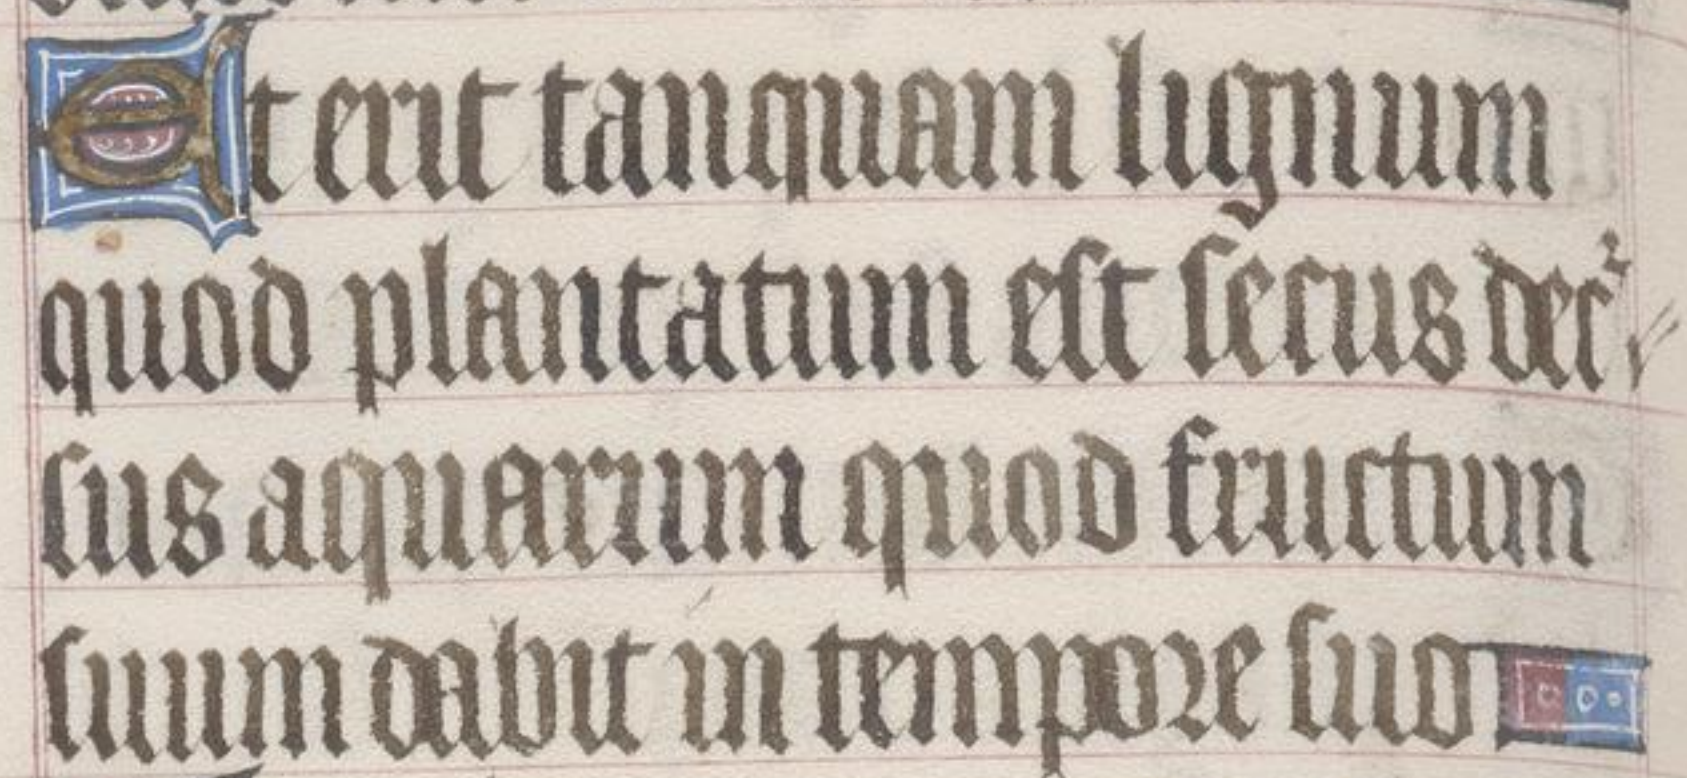 Et erit tanquam lignum
quod plantatum est secus decꝛ
sus aquarum quod fructum
suum dabit in tempore suo